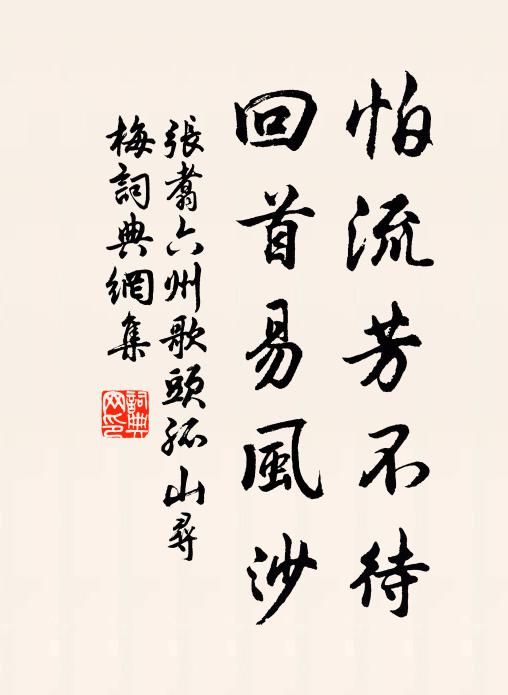 怕流芳不待
回首易風沙
張翥六州歌頭孤山尋
梅詞典網集
詞典
网印